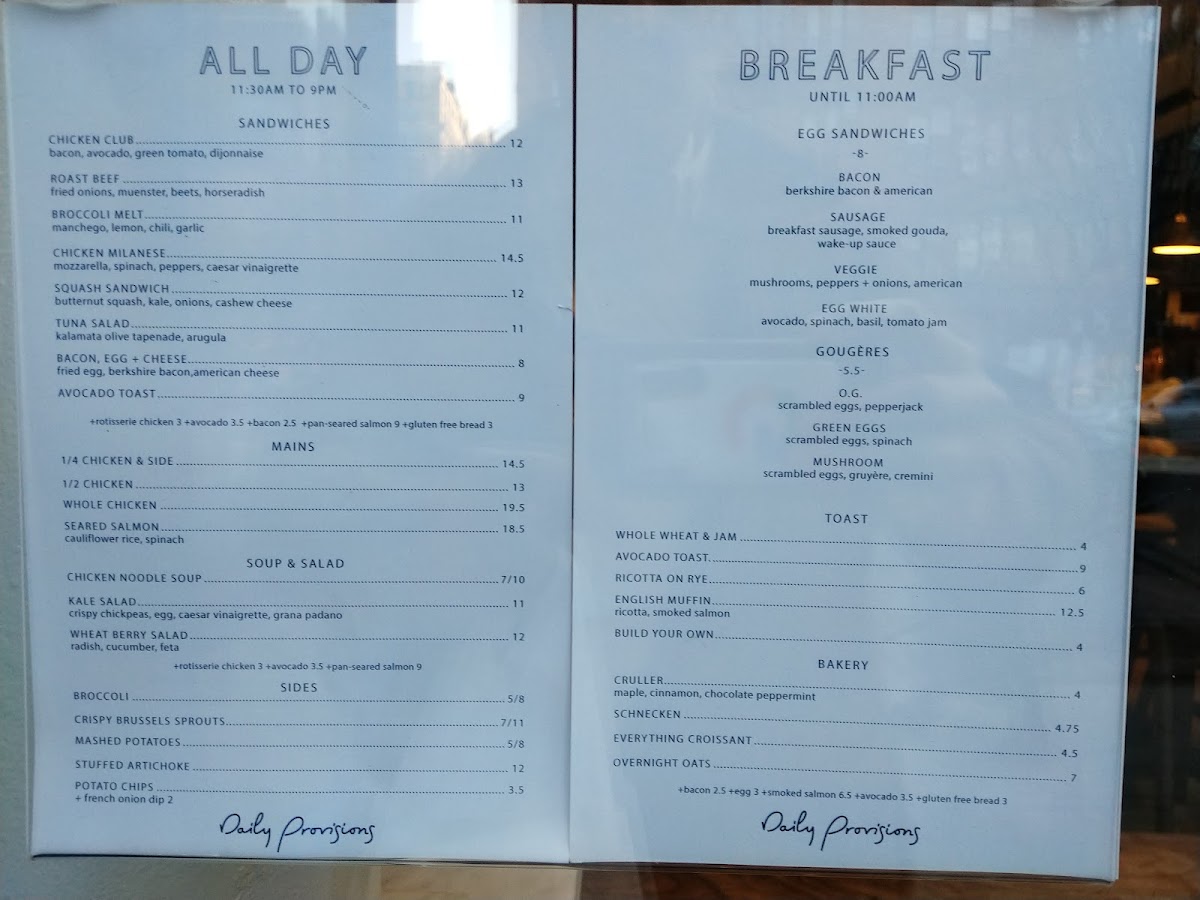 ALL DAY
11:30AM TO 9PM
SANDWICHES
CHICKEN CLUB 12
bacon, avocado, green tomato, dijonnaise
ROAST BEEF 13
fried onions, muenster, beets, horseradish
BROCCOLI MELT 11
manchego, lemon, chili, garlic
CHICKEN MILANESE 14.5
mozzarella, spinach, peppers, caesar vinaigrette
SQUASH SANDWICH 12
butternut squash, kale, onions, cashew cheese
TUNA SALAD 11
kalamata olive tapenade, arugula
BACON, EGG + CHEESE 8
fried egg, berkshire bacon,american cheese
AVOCADO TOAST 9
+rotisserie chicken 3 +avocado 3.5 +bacon 2.5 +pan-seared salmon 9 +gluten free bread 3
MAINS
1/4 CHICKEN & SIDE 14.5
1/2 CHICKEN 13
WHOLE CHICKEN 19.5
SEARED SALMON 18.5
cauliflower rice, spinach
SOUP & SALAD
CHICKEN NOODLE SOUP 7/10
KALE SALAD 11
crispy chickpeas, egg, caesar vinaigrette, grana padano
WHEAT BERRY SALAD 12
radish, cucumber, feta
+rotisserie chicken 3 +avocado 3.5 +pan-seared salmon 9
SIDES
BROCCOLI 5/8
CRISPY BRUSSELS SPROUTS 7/11
MASHED POTATOES 5/8
STUFFED ARTICHOKE 12
POTATO CHIPS 3.5
+ french onion dip 2
Daily Provisions
BREAKFAST
UNTIL 11:00AM
EGG SANDWICHES
-8-
BACON
berkshire bacon & american
SAUSAGE
breakfast sausage, smoked gouda,
wake-up sauce
VEGGIE
mushrooms, peppers + onions, american
EGG WHITE
avocado, spinach, basil, tomato jam
GOUGÈRES
-5.5-
O.G.
scrambled eggs, pepperjack
GREEN EGGS
scrambled eggs, spinach
MUSHROOM
scrambled eggs, gruyère, cremini
TOAST
WHOLE WHEAT & JAM 4
AVOCADO TOAST 9
RICOTTA ON RYE 6
ENGLISH MUFFIN 12.5
ricotta, smoked salmon
BUILD YOUR OWN 4
BAKERY
CRULLER 4
maple, cinnamon, chocolate peppermint
SCHNECKEN 4.75
EVERYTHING CROISSANT 4.5
OVERNIGHT OATS 7
+bacon 2.5 +egg 3 +smoked salmon 6.5 +avocado 3.5 +gluten free bread 3
Daily Provisions